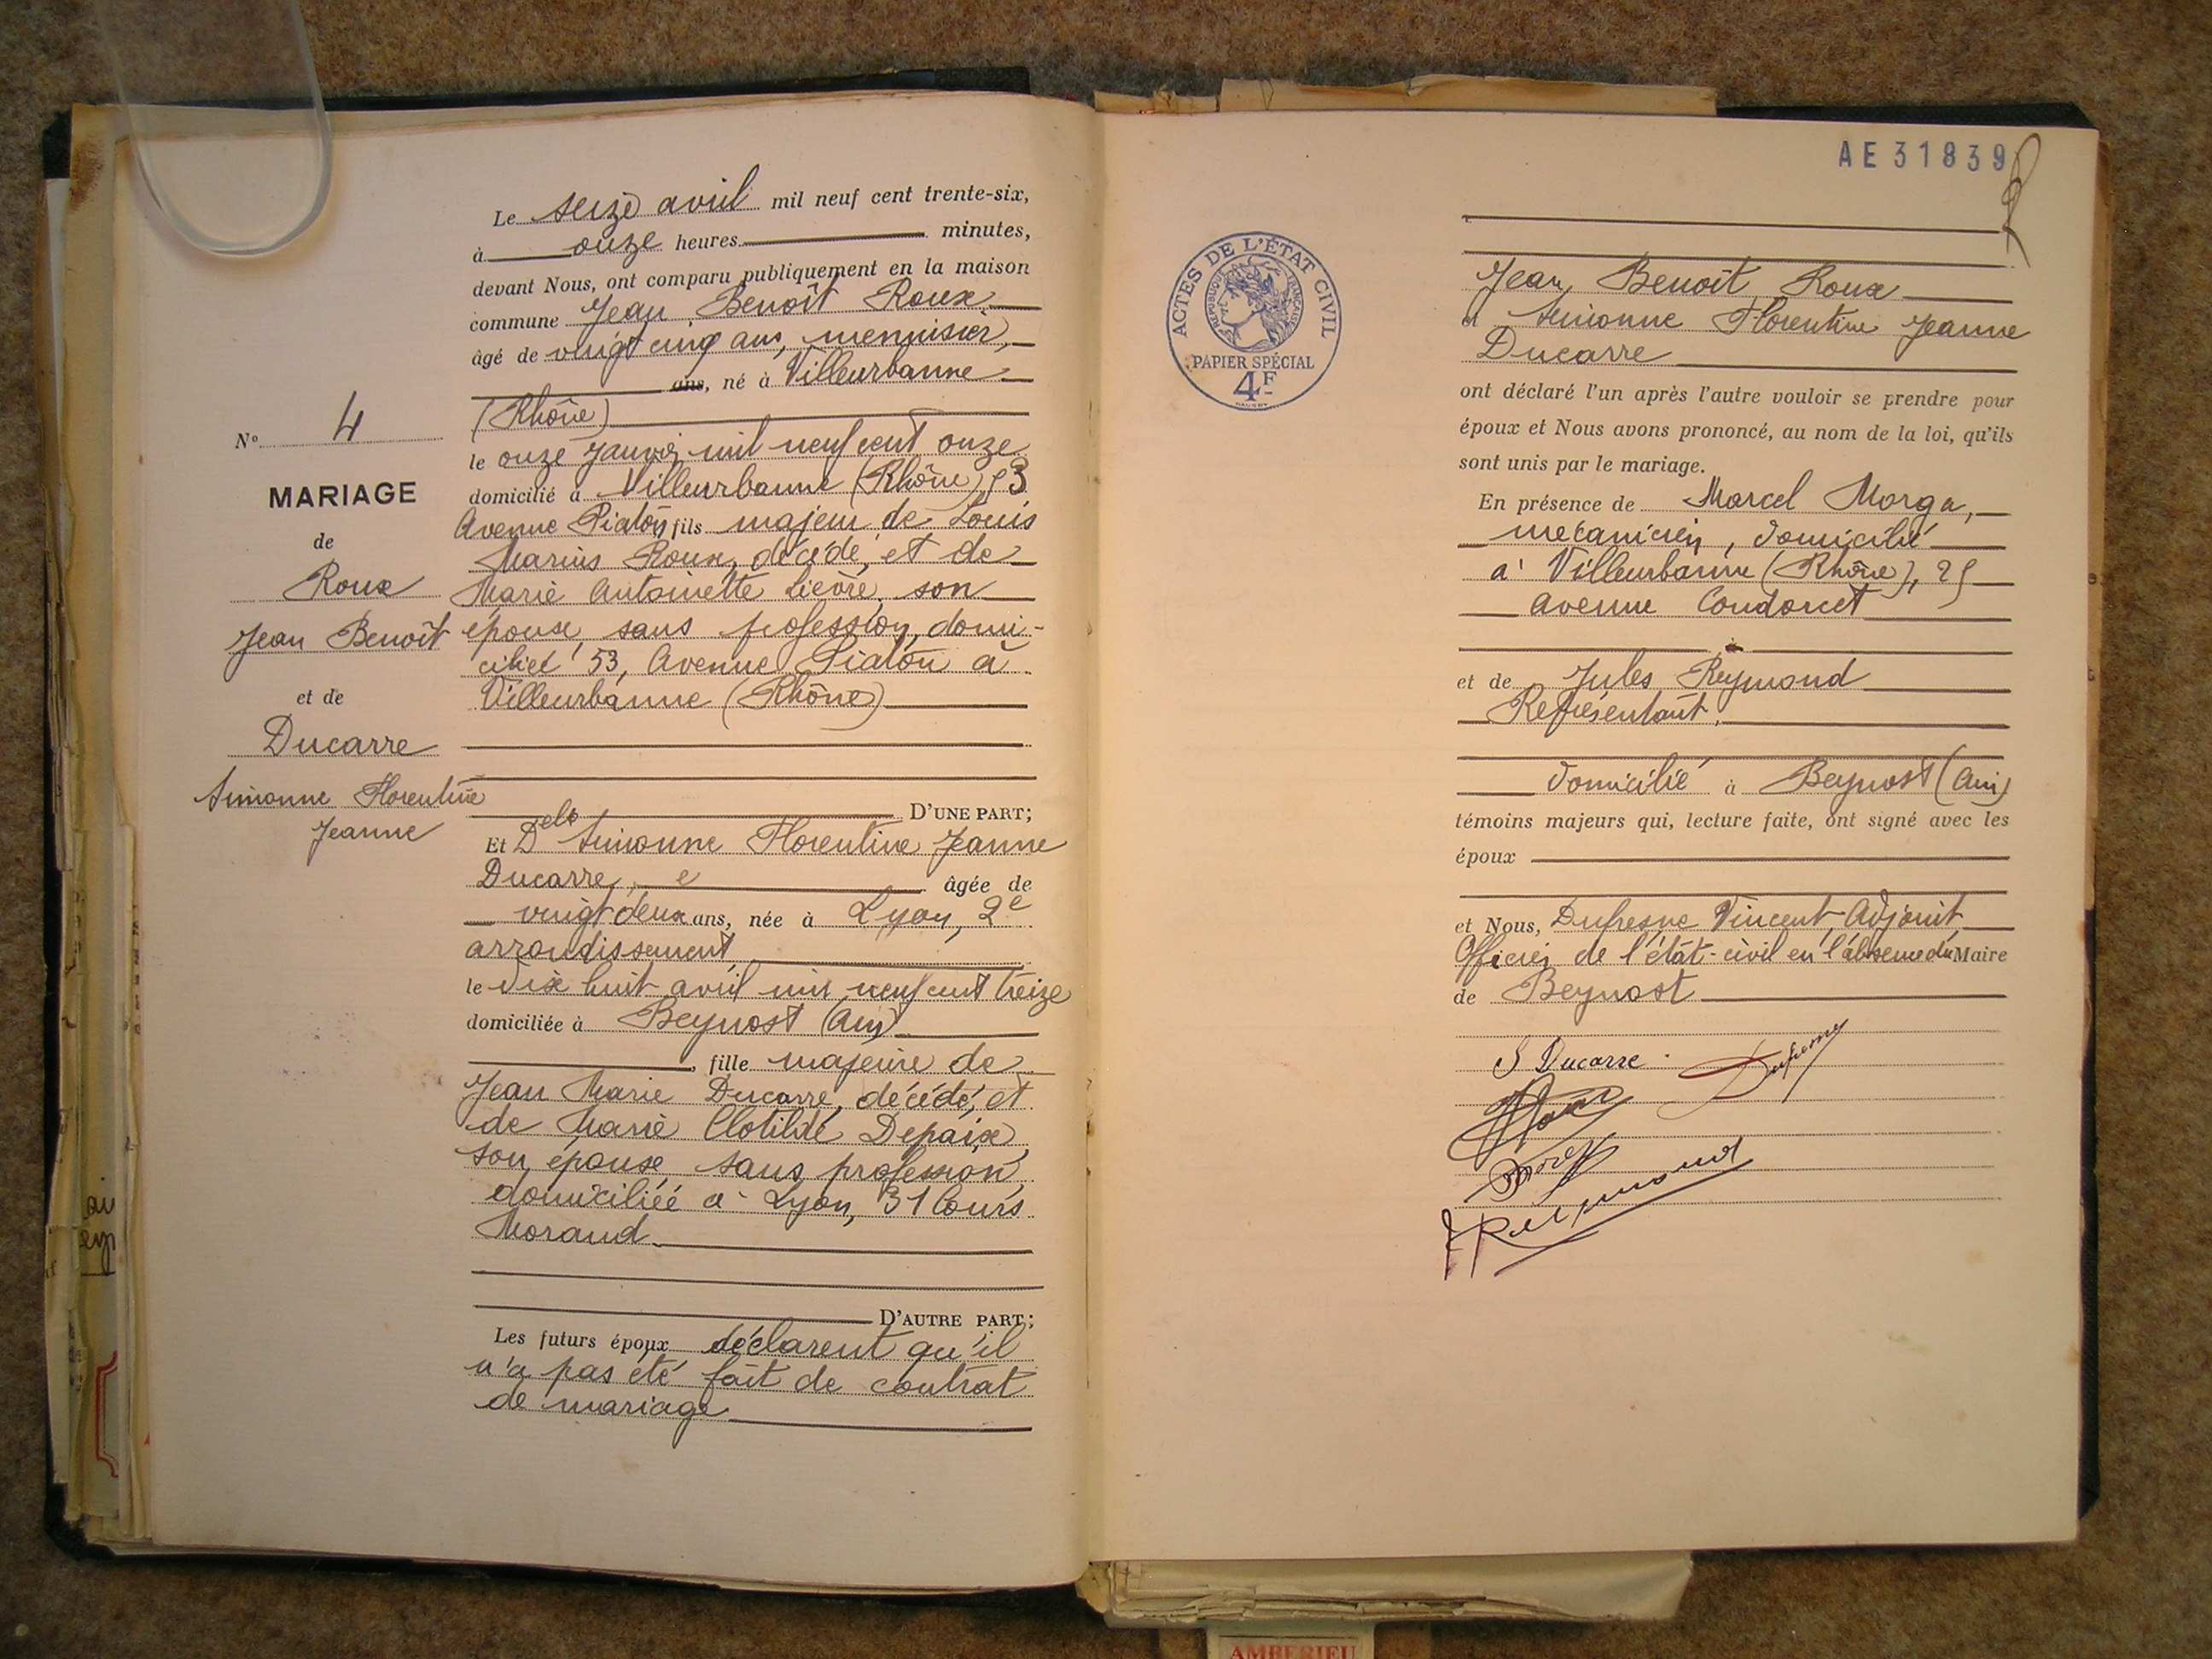 Le seize avril mil neuf cent trente-six,
à onze heures minutes,
devant Nous, ont comparu publiquement en la maison
commune Jean Benoît Roux
âgé de vingt cinq ans, menuisier,
ans, né à Villeurbanne
(Rhône)
le onze janvier mil neuf cent onze
domicilié à Villeurbanne (Rhône) 53
Avenue Piaton fils majeur de Louis
Marius Roux, décédé, et de
Marie Antoinette Lièvre, son
épouse, sans profession, domi-
ciliée 53, Avenue Piaton à
Villeurbanne (Rhône)
D'UNE PART;
Et Delle Simonne Florentine Jeanne
Ducarre, âgée de
vingt deux ans, née à Lyon, 2e
arrondissement
le dix huit avril mil neuf cent treize
domiciliée à Beynost (Ain)
, fille majeure de
Jean Marie Ducarre, décédé, et
de Marie Clotilde Depaix,
son épouse sans profession,
domiciliée à Lyon, 31 Cours
Morand
D'AUTRE PART;
Les futurs époux déclarent qu'il
n'a pas été fait de contrat
de mariage
No 4
MARIAGE
de
Roux
Jean Benoît
et de
Ducarre
Simonne Florentine
Jeanne
AE 31839
ACTES DE L'ÉTAT CIVIL
RÉPUBLIQUE FRANÇAISE
PAPIER SPÉCIAL
4F
Jean Benoît Roux
et Simonne Florentine Jeanne
Ducarre
ont déclaré l'un après l'autre vouloir se prendre pour
époux et Nous avons prononcé, au nom de la loi, qu'ils
sont unis par le mariage.
En présence de Marcel Morga,
mécanicien, domicilié
à Villeurbanne (Rhône), 25
avenue Condorcet
et de Jules Reymond
Représentant,
domicilié à Beynost (Ain)
témoins majeurs qui, lecture faite, ont signé avec les
époux
et Nous, Dufresne Vincent, Adjoint
Officier de l'état-civil en l'absence du Maire
de Beynost
S Ducarre
Dufresne
Reymond
AMBERIEU